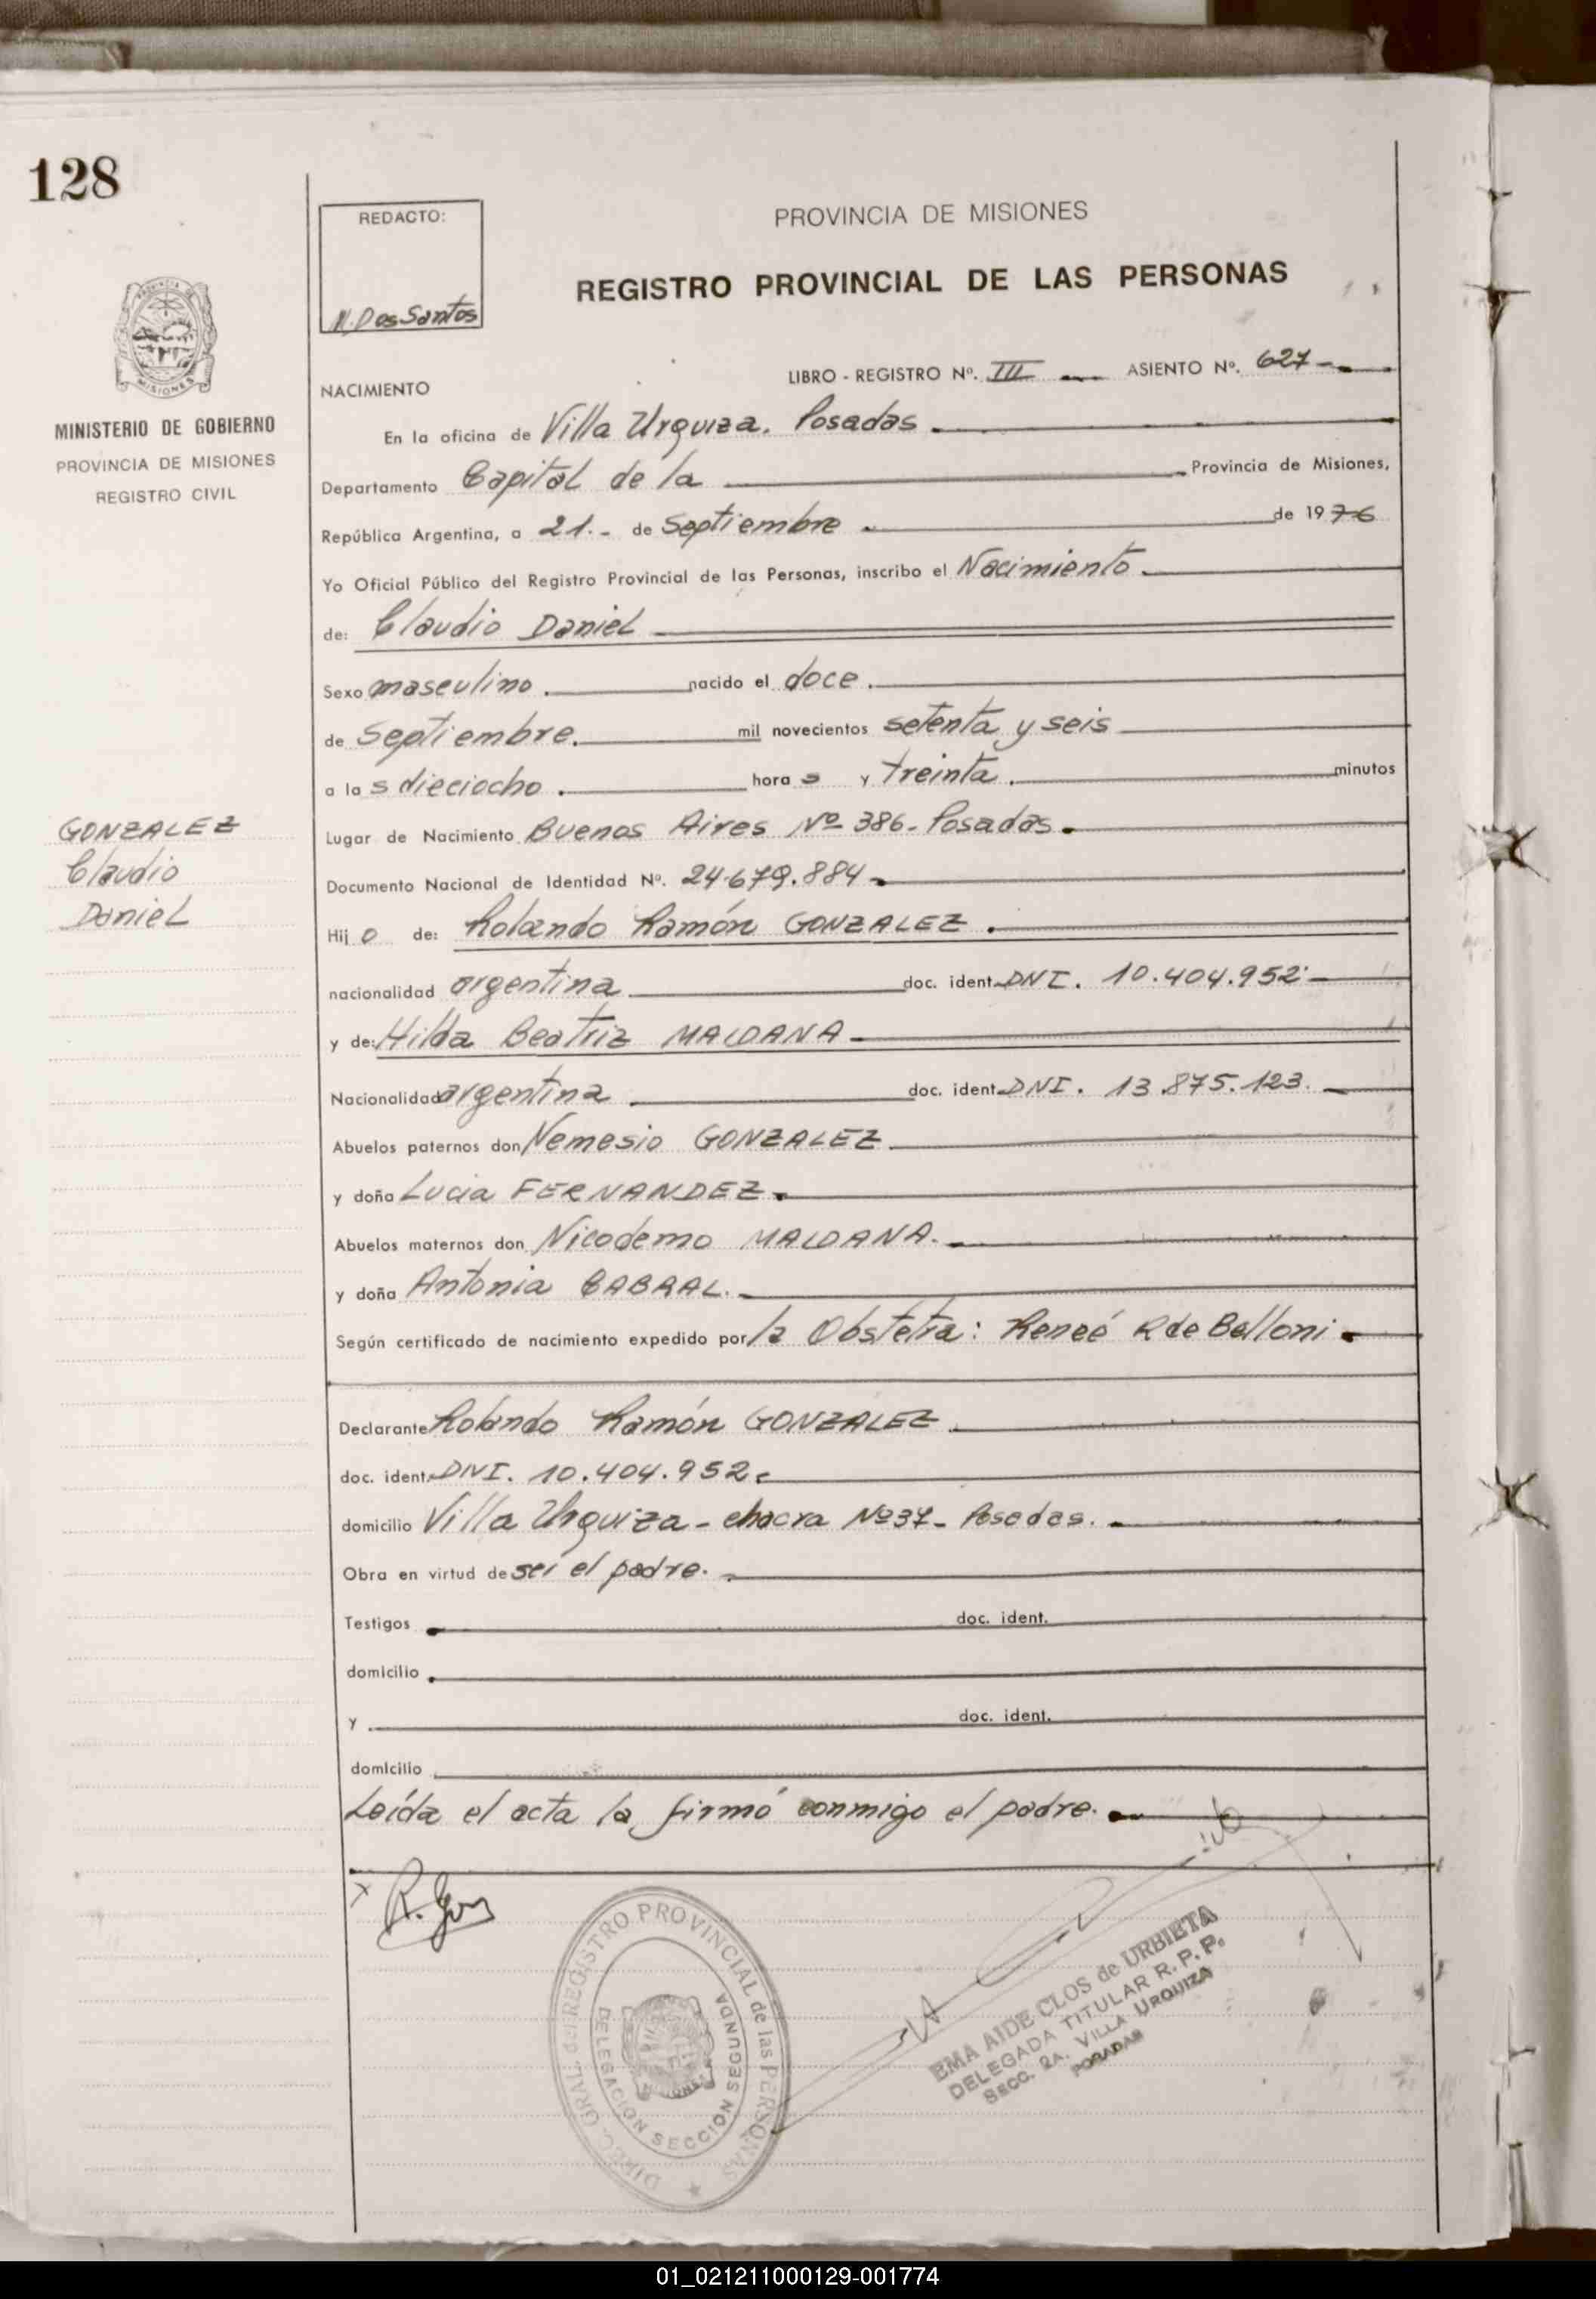 128
REDACTO:
N. Dos Santos
PROVINCIA DE MISIONES
REGISTRO PROVINCIAL DE LAS PERSONAS
MINISTERIO DE GOBIERNO
PROVINCIA DE MISIONES
REGISTRO CIVIL
NACIMIENTO
LIBRO - REGISTRO Nº. III ASIENTO Nº. 627
En la oficina de Villa Urquiza. Posadas
Departamento Capital de la Provincia de Misiones,
República Argentina, a 21.- de Septiembre de 1976
Yo Oficial Público del Registro Provincial de las Personas, inscribo el Nacimiento
de: Claudio Daniel
Sexo masculino. nacido el doce.
de Septiembre. mil novecientos setenta y seis
a las dieciocho. horas y treinta. minutos
Lugar de Nacimiento Buenos Aires Nº 386- Posadas.
Documento Nacional de Identidad Nº. 24.679.884
Hijo de: Rolando Ramón GONZALEZ.
nacionalidad argentina doc. ident. DNI. 10.404.952
y de: Hilda Beatriz MALDANA
Nacionalidad argentina doc. ident. DNI. 13.875.123.
Abuelos paternos don Nemesio GONZALEZ
y doña Lucia FERNANDEZ.
Abuelos maternos don Nicodemo MALDANA.
y doña Antonia CABRAL.
Según certificado de nacimiento expedido por la Obstetra: Reneé R de Belloni.
Declarante Rolando Ramón GONZALEZ
doc. ident. DNI. 10.404.952.
domicilio Villa Urquiza - chacra Nº37- Posadas.
Obra en virtud de ser el padre.
Testigos doc. ident.
domicilio
y doc. ident.
domicilio
Leída el acta la firmó conmigo el padre.
GONZALEZ
Claudio
Daniel
DIREC. GRAL. del REGISTRO PROVINCIAL de las PERSONAS
DELEGACION SECCION SEGUNDA
EMA AIDE CLOS de URBIETA
DELEGADA TITULAR R. P. P.
SECC. 2A. VILLA URQUIZA
POSADAS
01_021211000129-001774